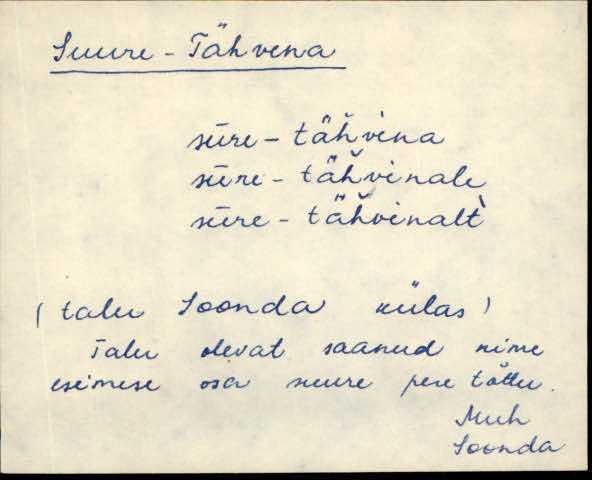 Suure-Tähvena
sūre-täȟvena
sūre-täȟvenale
sūre-täȟvenalt̀
(talu Soonda külas)
Talu olevat saanud nime
esimese osa suure pere tõttu.
Muh
Soonda